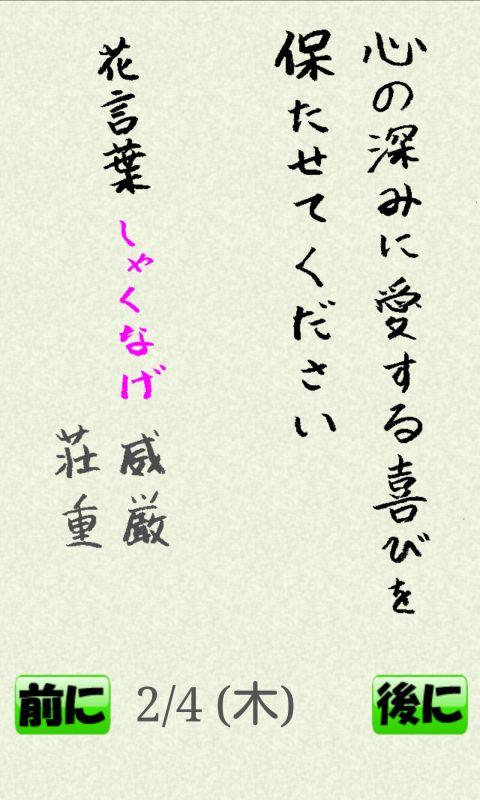 心の深みに愛する喜びを
保たせてください
花言葉 しゃくなげ
威厳
荘重
前に 2/4 (木) 後に